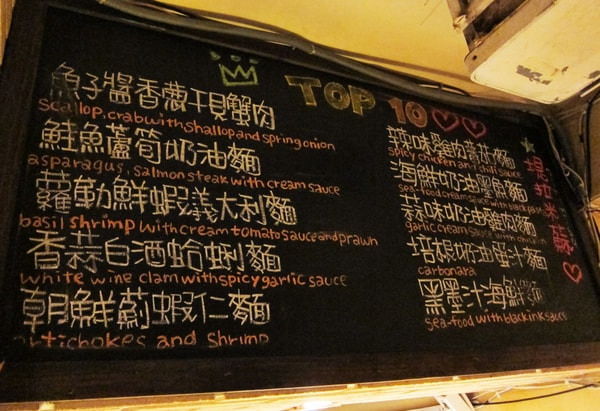 TOP 10
魚子醬香蔥干貝蟹肉
scallop, crab with shallop and spring onion
鮭魚蘆筍奶油麵
asparagus, salmon steak with cream sauce
蘿勒鮮蝦義大利麵
basil shrimp with cream tomato sauce and prawn
香蒜白酒蛤蜊麵
white wine clam with spicy garlic sauce
朝鮮薊蝦仁麵
artichokes and shrimp
辣味雞肉蒜放麵
spicy chicken and chili sauce
海鮮奶油墨魚麵
sea-food cream sauce with dark pasta
蒜味奶油雞肉麵
garlic cream sauce with chicken
培根奶油蛋汁麵
carbonara
黑墨汁海鮮麵
sea-food with black ink sauce
提拉米蘇